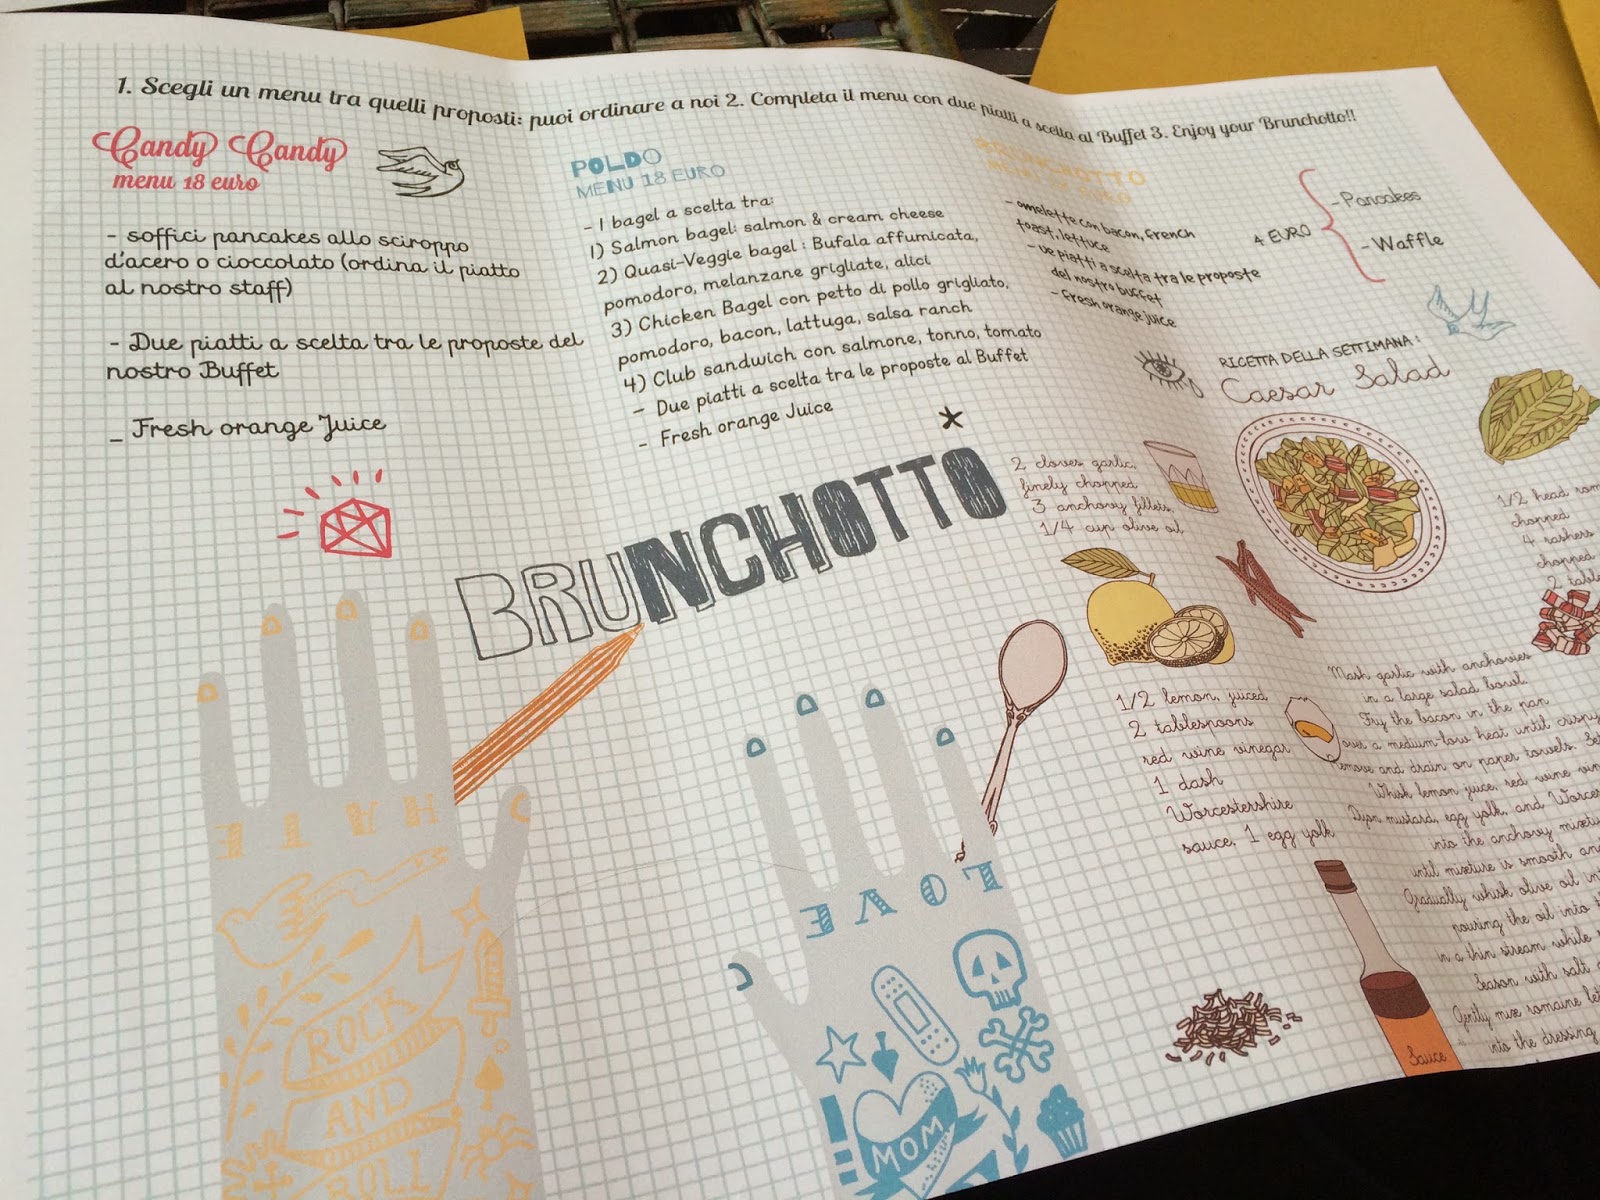 1. Scegli un menu tra quelli proposti: puoi ordinare a noi 2. Completa il menu con due piatti a scelta al Buffet 3. Enjoy your Brunchotto!!
Candy Candy
menu 18 euro
- soffici pancakes allo sciroppo
d'acero o cioccolato (ordina il piatto
al nostro staff)
- Due piatti a scelta tra le proposte del
nostro Buffet
_ Fresh orange Juice
POLDO
MENU 18 EURO
- 1 bagel a scelta tra:
1) Salmon bagel: salmon & cream cheese
2) Quasi-Veggie bagel : Bufala affumicata,
pomodoro, melanzane grigliate, alici
3) Chicken Bagel con petto di pollo grigliato,
pomodoro, bacon, lattuga, salsa ranch
4) Club sandwich con salmone, tonno, tomato
- Due piatti a scelta tra le proposte al Buffet
- Fresh orange Juice
BRUNCHOTTO
- omelette con bacon, french
toast, lettuce
- ue piatti a scelta tra le proposte
del nostro buffet
- Fresh orange juice
4 EURO
- Pancakes
- Waffle
RICETTA DELLA SETTIMANA:
Caesar Salad
2 cloves garlic,
finely chopped
3 anchovy fillets,
1/4 cup olive oil
1/2 head
chopped
4 rashers
chopped
2
1/2 lemon, juiced
2 tablespoons
red wine vinegar
1 dash
Worcestershire
sauce, 1 egg yolk
Mash garlic with anchovies
in a large salad bowl.
Fry the bacon in the pan
over a medium-low heat until crispy
Remove and drain on paper towels.
Whisk lemon juice, red wine
Dijon mustard, egg yolk, and
into the anchovy
until mixture is smooth
Gradually whisk olive oil
pouring the oil into
in a thin stream while
Season with salt
Gently mix romaine
into the dressing
Sauce
BRUNCHOTTO
HATE
ROCK
AND
ROLL
LOVE
MOM